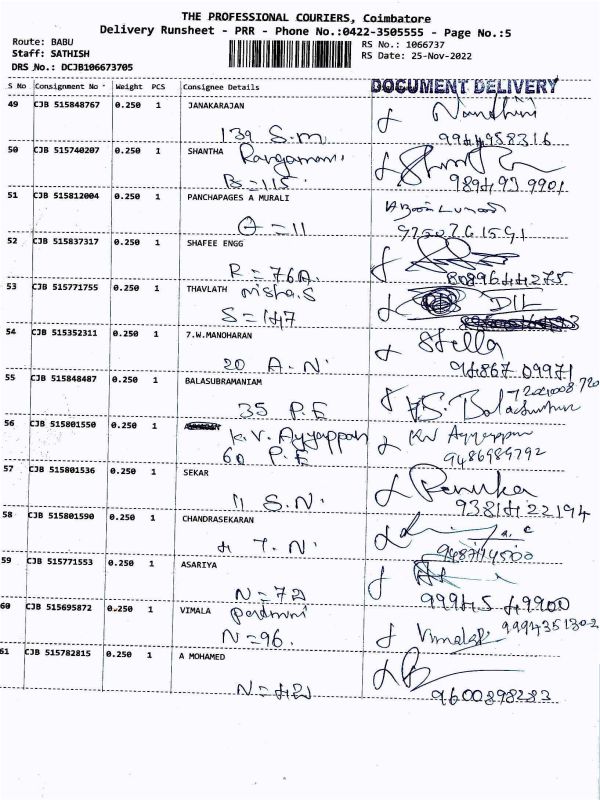 THE PROFESSIONAL COURIERS, Coimbatore
Delivery Runsheet - PRR - Phone No.:0422-3505555 - Page No.:5
Route: BABU
Staff: SATHISH
DRS No.: DCJB106673705
RS No.: 1066737
RS Date: 25-Nov-2022
S No Consignment No Weight PCS Consignee Details DOCUMENT DELIVERY
49 CJB 515848767 0.250 1 JANAKARAJAN Nandhini
139 S.M 9944958316
50 CJB 515740207 0.250 1 SHANTHA Rangamani
B=115 9894939901
51 CJB 515812004 0.250 1 PANCHAPAGES A MURALI
11 9750761591
52 CJB 515837317 0.250 1 SHAFEE ENGG
R=76A. 8089644275
53 CJB 515771755 0.250 1 THAVLATH misha.S DIL
S=147
54 CJB 515352311 0.250 1 7.W.MANOHARAN Stella
20 A.N. 9486709971
55 CJB 515848487 0.250 1 BALASUBRAMANIAM
35 P.E
56 CJB 515801550 0.250 1 K.V. Ayyappan KV Ayyappan
60 P.E 9486989792
57 CJB 515801536 0.250 1 SEKAR Renuka
11 S.N. 9381422194
58 CJB 515801590 0.250 1 CHANDRASEKARAN
4 7.N.
59 CJB 515771553 0.250 1 ASARIYA
N=72 9994549900
60 CJB 515695872 0.250 1 VIMALA
N=96. Vimala
61 CJB 515782815 0.250 1 A MOHAMED
N=42 9600898283